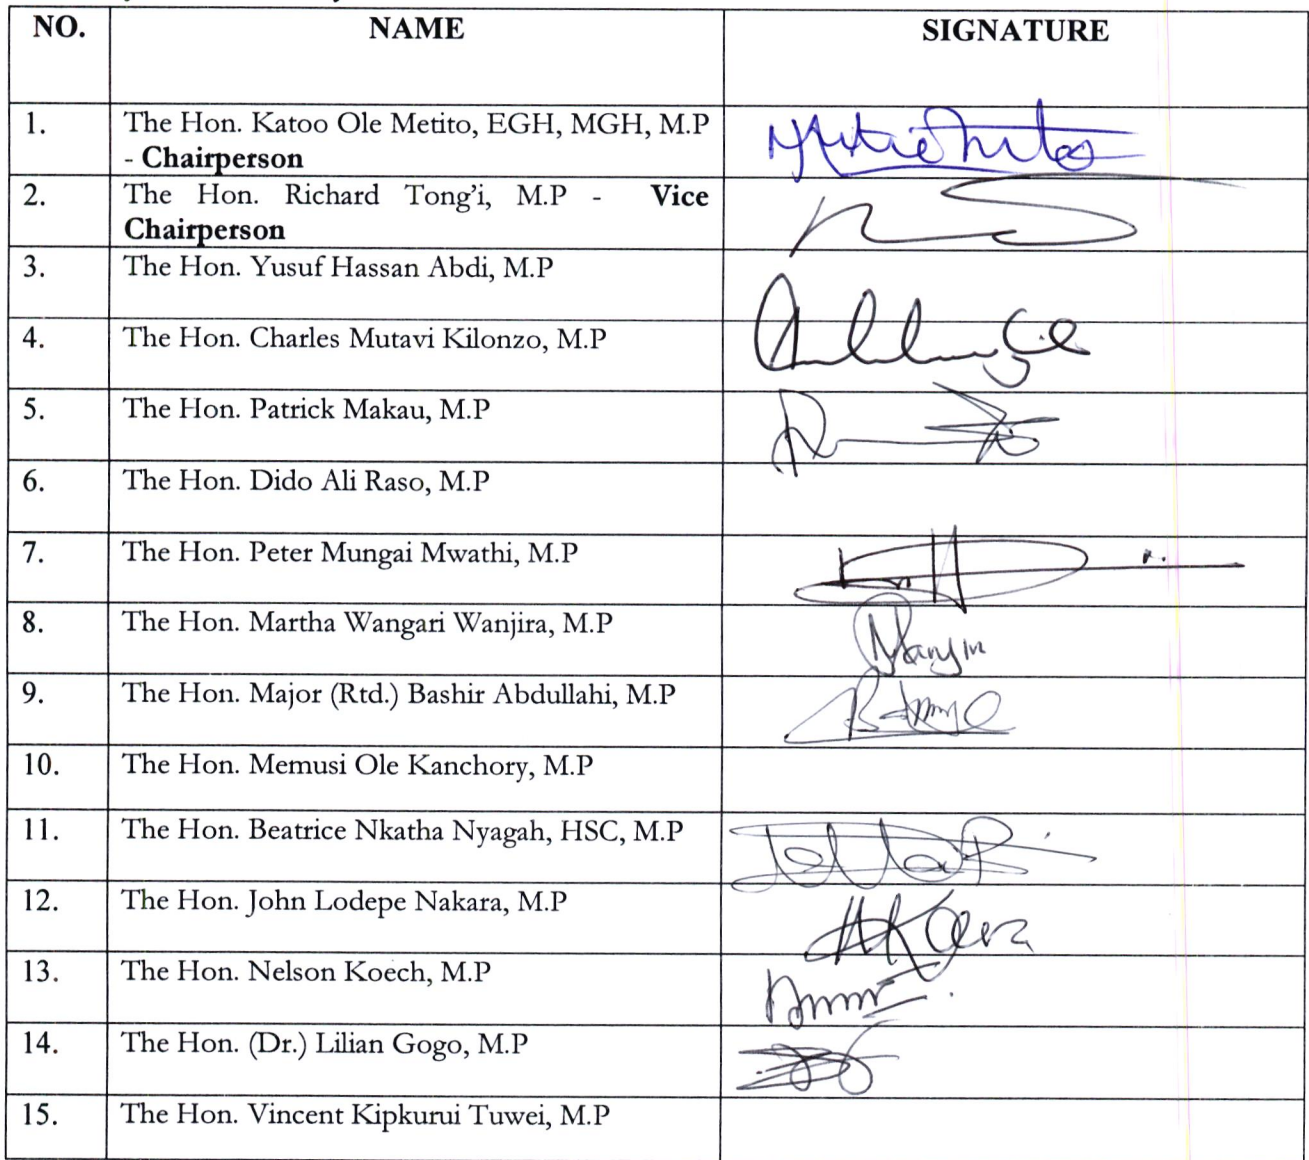 NO. NAME SIGNATURE
1. The Hon. Katoo Ole Metito, EGH, MGH, M.P
- Chairperson
2. The Hon. Richard Tong'i, M.P - Vice
Chairperson
3. The Hon. Yusuf Hassan Abdi, M.P
4. The Hon. Charles Mutavi Kilonzo, M.P
5. The Hon. Patrick Makau, M.P
6. The Hon. Dido Ali Raso, M.P
7. The Hon. Peter Mungai Mwathi, M.P
8. The Hon. Martha Wangari Wanjira, M.P
9. The Hon. Major (Rtd.) Bashir Abdullahi, M.P
10. The Hon. Memusi Ole Kanchory, M.P
11. The Hon. Beatrice Nkatha Nyagah, HSC, M.P
12. The Hon. John Lodepe Nakara, M.P
13. The Hon. Nelson Koech, M.P
14. The Hon. (Dr.) Lilian Gogo, M.P
15. The Hon. Vincent Kipkurui Tuwei, M.P